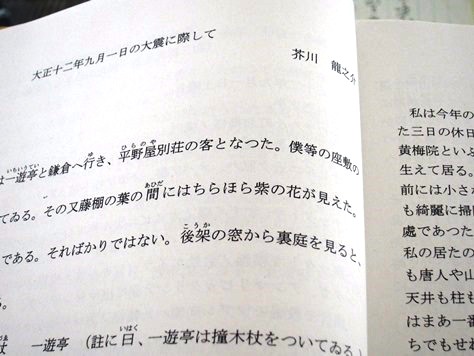 大正十二年九月一日の大震に際して
芥川　龍之介
いちいうてい　ゆ　ひらのや
は一遊亭と鎌倉へ行き、平野屋別荘の客となつた。僕等の座敷の
あひだ
てゐる。その又藤棚の葉の間にはちらほら紫の花が見えた。
こうか
である。そればかりではない。後架の窓から裏庭を見ると、
る。
いはく
一遊亭（註に曰、一遊亭は撞木杖をついてゐる）
私は今年の
た三日の休日
黄梅院といふ
生えて居る。
前には小さ
も綺麗に掃
處であつた
私の居たの
も唐人や山
天井も柱も
はまあ一番
ちでもせね